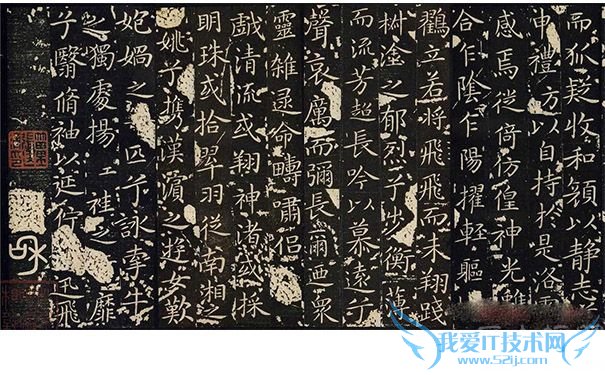 而狐疑收和顏以静志
申禮方以自持於是洛靈
感焉徙倚仿偟神光離
合乍陰乍陽擢輕軀
鸖立若將飛飛而未翔踐
樹塗之郁烈兮步衡薄
而流芳超長吟以慕遠兮
聲哀厲而彌長爾迺衆
靈雜遝命嘯侣
戯清流或翔神渚或採
明珠或拾翠羽從南湘之
姚兮攜漢濱之遊女歎
妃媧之匹兮詠牽牛
之獨處揚袿之靡
兮翳脩袖以延佇迅飛
我爱IT技术网
www.52ij.com